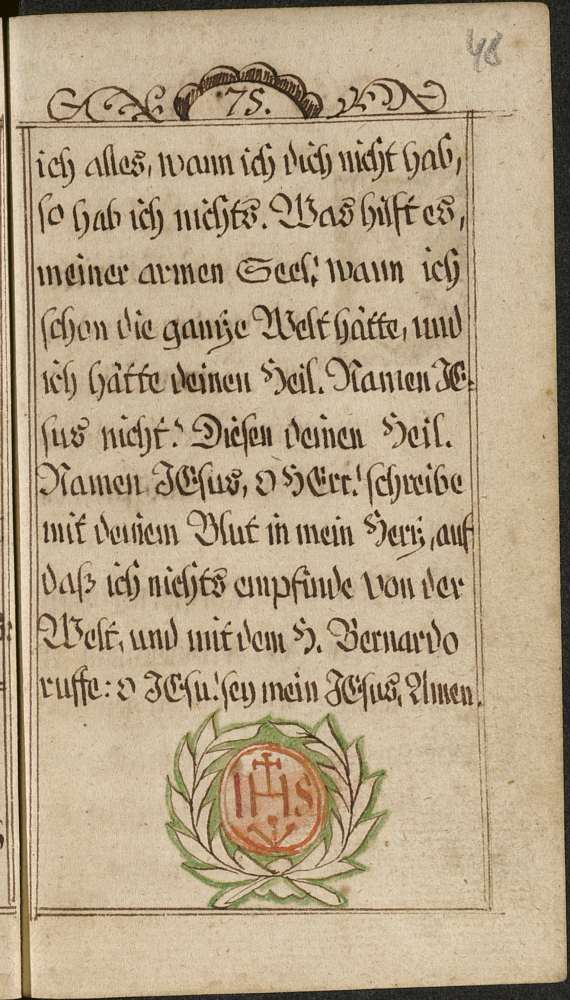 48
75.
ich alles, wann ich dich nicht hab,
so hab ich nichts. Was hilft es,
meiner armen Seel! wann ich
schon die gantze Welt hätte, und
ich hätte deinen Heil. Namen JE-
sus nicht? Diesen deinen Heil.
Namen JEsus, O HErr! schreibe
mit deinem Blut in mein Hertz, auf
daß ich nichts empfinde von der
Welt, und mit dem H. Bernardo
ruffe: O JEsu! sey mein JEsus, Amen.
IHS